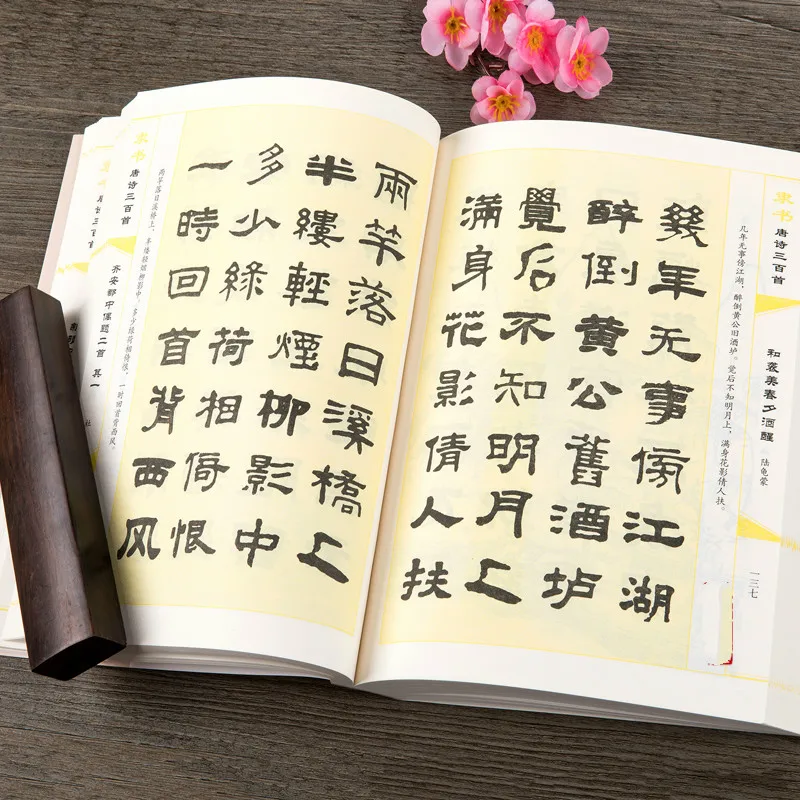 隶书 唐诗三百首
和袭美春夕酒醒 陆龟蒙
一三七
几年无事傍江湖，醉倒黄公旧酒垆。觉后不知明月上，满身花影倩人扶。
幾年无事傍江湖
醉倒黄公舊酒垆
覺后不知明月上
滿身花影倩人扶
兩竿落日溪橋上
半縷輕煙柳影中
多少綠荷相倚恨
一時回首背西风
两竿落日溪桥上，半缕轻烟柳影中。多少绿荷相倚恨，一时回首背西风。
隶书 唐诗三百首
齐安郡中偶题二首 其一 杜
唐诗三百首